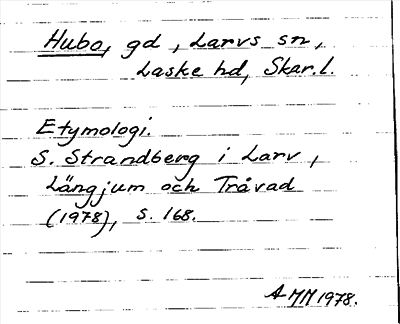 Hubo, gd, Larvs sn,
Laske hd, Skar.l.
Etymologi.
S. Strandberg i Larv,
Längjum och Tråvad
(1978), s. 168.
AMM 1978.